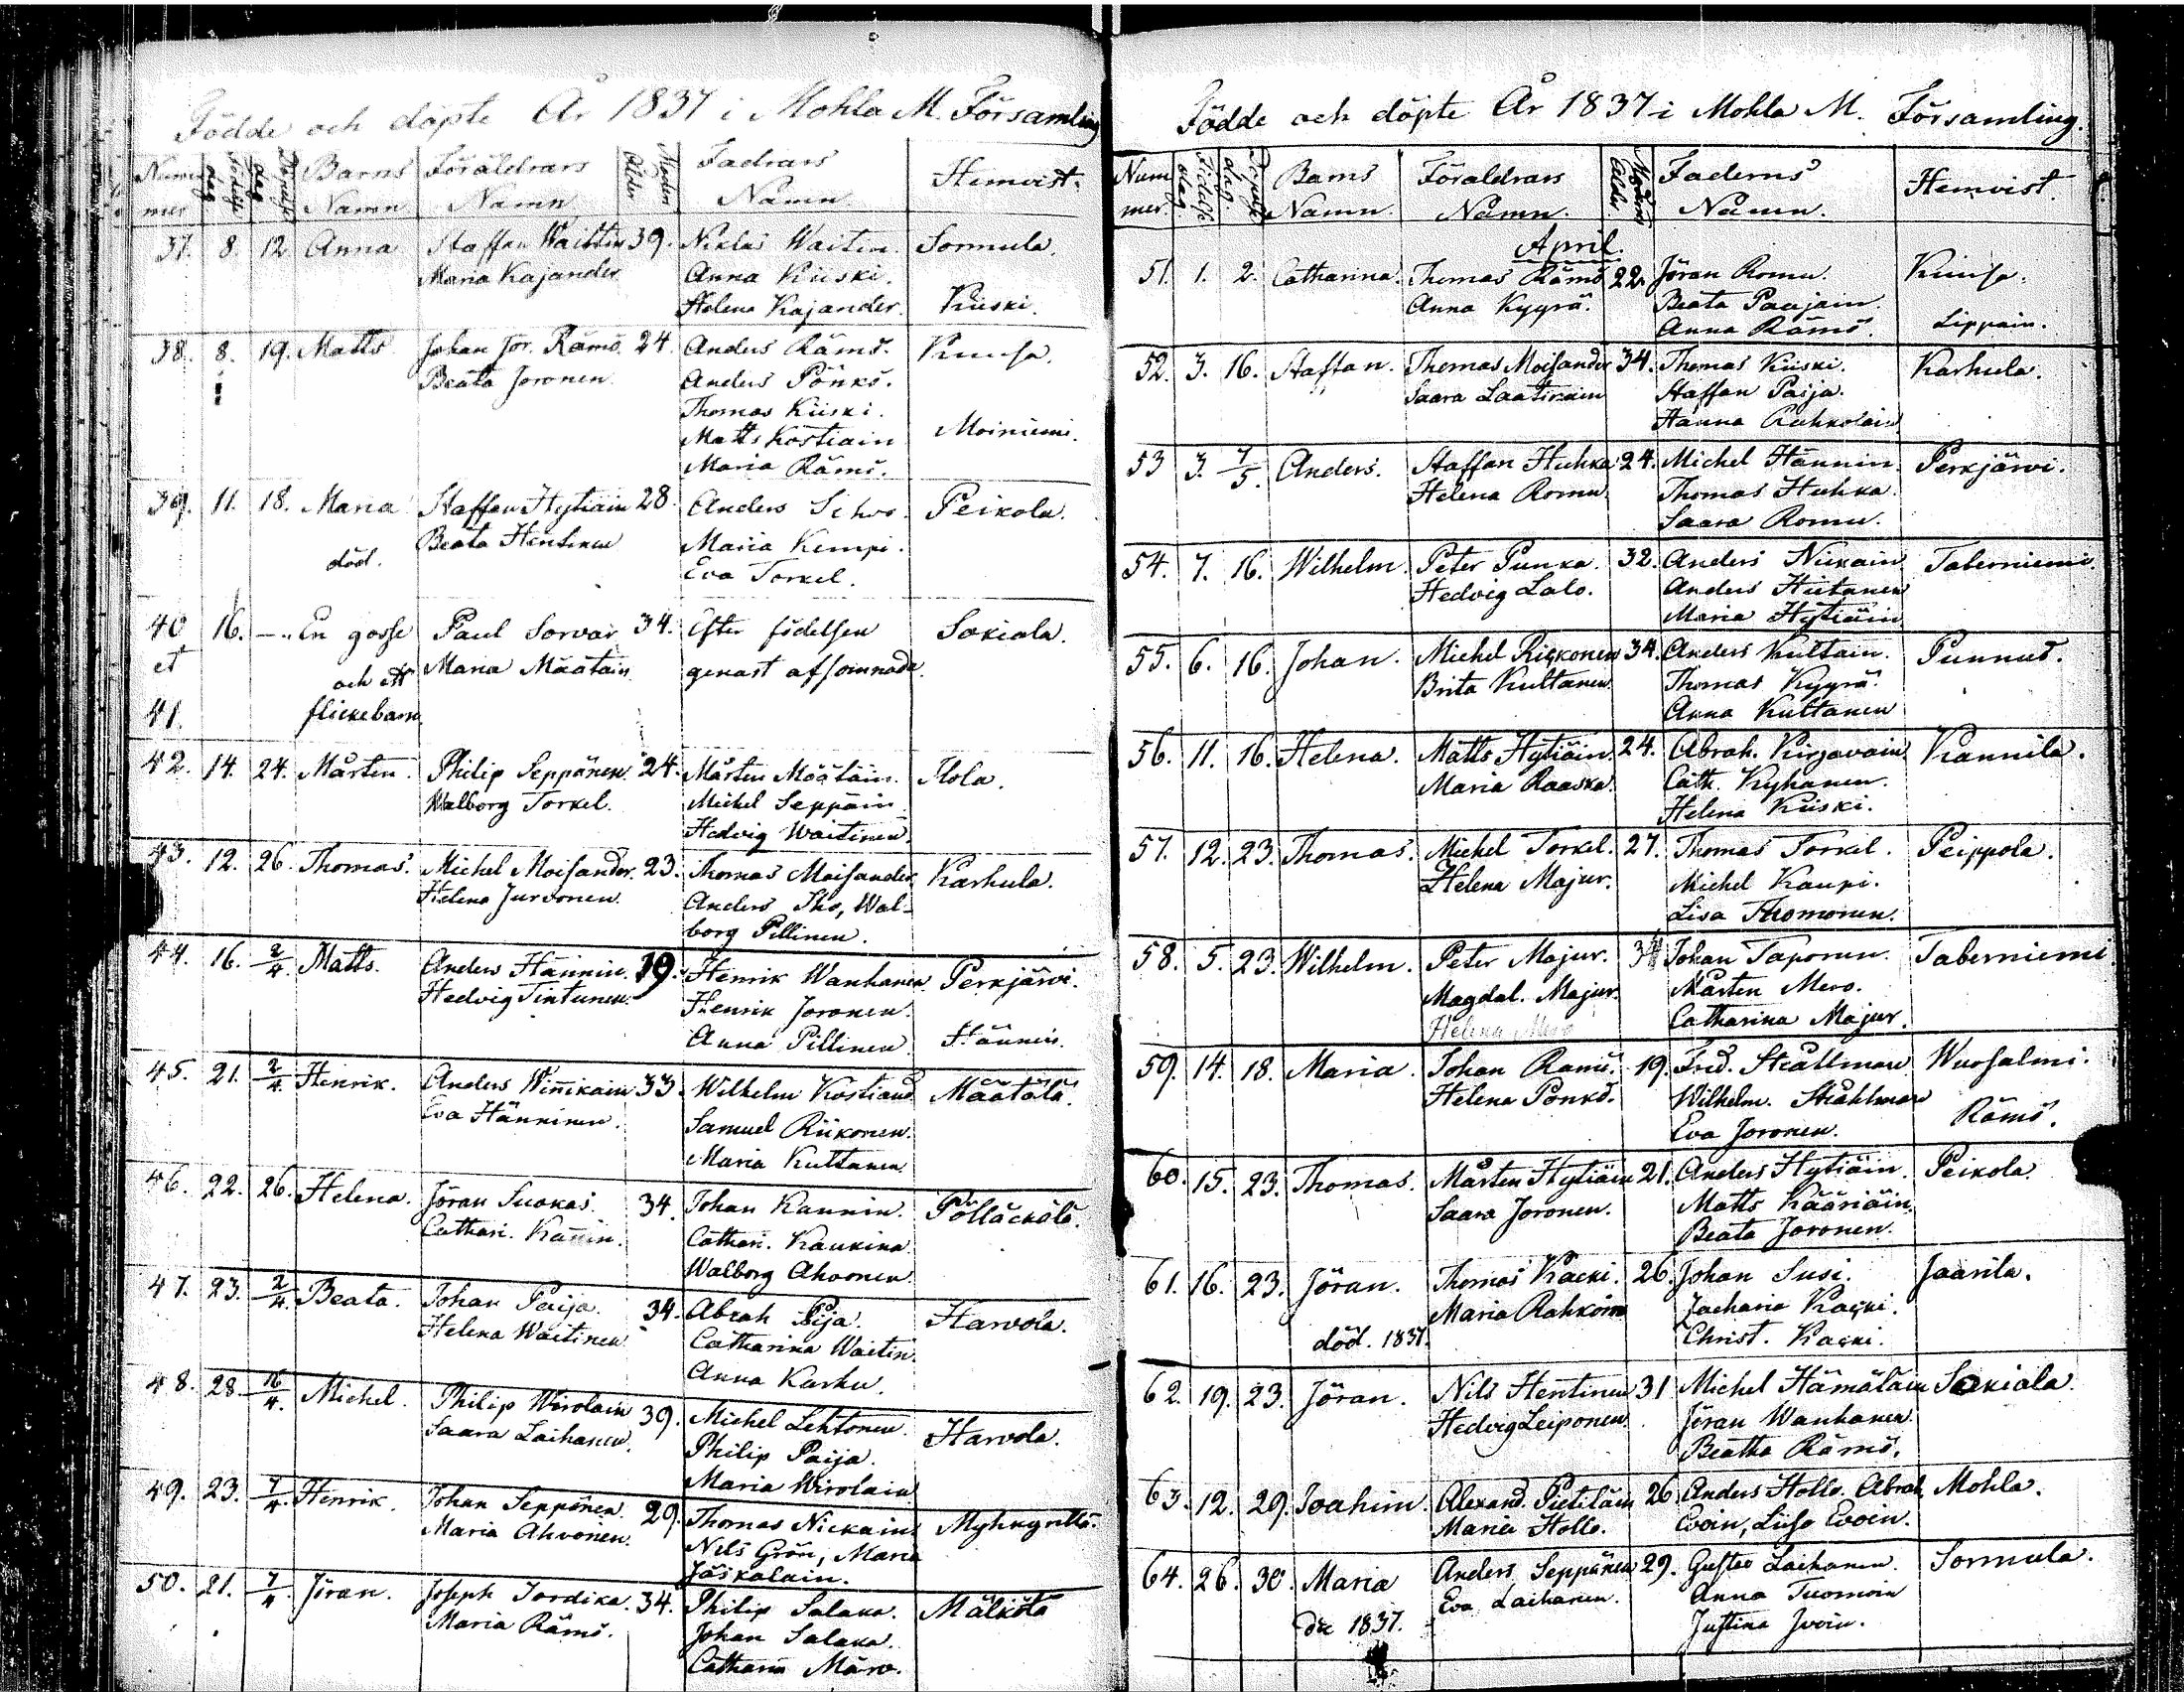 Födde och döpte År 1837 i Mohla M. Församling
Nummer Födelse dag Döpelse dag Barns Namn Föräldrars Namn Moders Ålder Fadrars Namn Hemvist.
37. 8. 12 Anna Staffan Waittin 39. Niklas Waitin. Sormula.
Maria Kajander Anna Kiiski.
Helena Kajander. Kiiski.
38. 8. 19. Matts Johan Jör. Rämö. 24. Anders Rämö. Kuusa.
Beata Joronen. Anders Pönkö.
Thomas Kiiski.
Matts Kostiain Moiniemi.
Maria Rämö.
39. 11. 18. Maria Staffan Hytiäin 28. Anders Peikola.
död. Beata Hentinen Maria Kempi.
Eva Torkel.
40 16. — En gosse Paul Sorvar 34. Efter födelsen Sokiala.
et och ett Maria Määtäin genast afsomnade.
41. flickebarn.
42. 14. 24. Mårten. Philip Seppänen. 24. Mårten Määtäin. Ilola.
Walborg Torkel. Michel Seppäin
Hedvig Waitinen.
43. 12. 26. Thomas. Michel Moisander. 23. Thomas Moisander. Karhula.
Helena Juvonen. Anders Iho, Wal-
borg Pillinen.
44. 16. 2/4 Matts. Anders Hännin. 19. Henrik Wanhanen. Perkjärvi.
Hedvig Tintunen. Henrik Joronen.
Anna Pillinen. Hännin.
45. 21. 2/4 Henrik. Anders Winikain 33. Wilhelm Kostiand Määtälä.
Eva Hänninen. Samuel Riikonen.
Maria Kultanen
46. 22. 26. Helena. Jöran Suokas. 34. Johan Kannin. Pölläckälä.
Cathari. Kanin. Cathari. Kaukina
Walborg Ahvonen.
47. 23. 2/4. Beata. Johan Paija. 34. Abrah Pija. Harvola.
Helena Waitinen Catharina Waitin.
Anna Karhu.
48. 28. 16/4. Michel. Philip Wirolain 39. Michel Lehtonen. Harvola.
Saara Laihanen. Philip Paija.
Maria Wirolain
49. 23. 7/4. Henrik. Johan Seppänen. 29. Thomas Nickain
Maria Ahvonen. Nils Grön, Maria
Jäskälain.
50. 21. 7/4 Jöran. Joseph Tordika. 34. Philip Salaka. Mälkölä
Maria Rämö. Johan Salaka.
Catharin Märo.
Födde och döpte År 1837 i Mohla M. Församling.
Nummer. Födelse dag Döpelse dag Barns Namn. Föräldrars Namn. Moders Ålder Faderns Namn. Hemvist.
April.
51. 1. 2. Catharina. Thomas Rämö 22. Jöran Romu. Kuusa.
Anna Kyyrä. Beata Paajain
Anna Rämö. Lippain.
52. 3. 16. Staffan. Thomas Moisander 34. Thomas Kiiski. Karhula.
Saara Laatikain Staffan Paija.
Hanna Ruhkolain
53 3. 7/5. Anders. Staffan Huhka 24. Michel Hännin. Perkjärvi.
Helena Romu. Thomas Huhka.
Saara Romu.
54. 7. 16. Wilhelm. Peter Punka. 32. Anders Nickain Taberniemi
Hedvig Lalo. Anders Hietanen
Maria Hytiäin
55. 6. 16. Johan. Michel Rickonen 34. Anders Kultain. Punnus.
Brita Kultanen. Thomas Kyyrä.
Anna Kultanen
56. 11. 16. Helena. Matts Hytiäin. 24. Abrah. Kirjavain. Kannila.
Maria Raaska. Cath. Kyhanen.
Helena Kiiski.
57. 12. 23. Thomas. Michel Torkel. 27. Thomas Torkel. Peippola.
Helena Majur. Michel Kaupi.
Lisa Thomonen.
58. 5. 23. Wilhelm. Peter Majur. 34 Johan Taponen. Taberniemi
Magdal. Majur. Mårten Mero.
Helena Mero Catharina Majur.
59. 14. 18. Maria. Johan Rämö. 19. Fred. Strållman Wuosalmi.
Helena Pönkö. Wilhelm. Stråhlman
Eva Joronen. Rämö.
60. 15. 23. Thomas. Mårten Hytiäin 21. Anders Hytiäin. Peikola.
Saara Joronen. Matts Kääriäin.
Beata Joronen.
61. 16. 23. Jöran. Thomas Kacki. 26. Johan Susi. Jaarila.
Maria Rahkoin Zacharia Kacki.
död. 1837. Christ. Kacki.
62. 19. 23. Jöran. Nils Hentinen 31 Michel Hämäläin Sokiala.
Hedvig Leiponen. Jöran Wanhanen.
Beatha Rämö.
63. 12. 29. Joahim. Alexand. Pietiläin 26. Anders Hollo. Abrah. Mohla.
Maria Hollo. Evoin, Liisa Evoin.
64. 26. 30. Maria Anders Seppänen 29. Gustav Laihanen. Sormula.
Eva Laihanen. Anna Tuomoin
död 1837. Justina Ivoin.